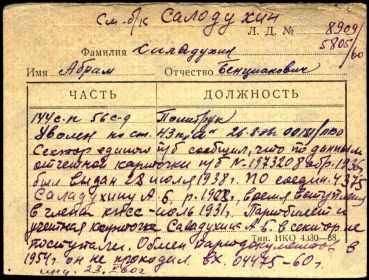 См. б/к Салодухин
Л. Д. № 8909
5805/60
Фамилия Саладухин
Имя Абрам Отчество Бенцианович
ЧАСТЬ ДОЛЖНОСТЬ
144 с.п 56 с.д Политрук
Уволен по ст. 43 п."а" 26.8
Сектор единого п/б сообщил, что по данным
отчетной карточки п/б № 1973208 обр. 1936
был выдан 28 июля 1938г. по соедин. 4375
Саладухину А. Б. р. 1908, время вступления
в члены КПСС - июль 1931. Партбилет и
учетная карточка Саладухин А. Б. в сектор не
поступали. Обмен партдокументов в
Тип. НКО 4330—38
1954г. он не проходил вх. 04475-60г.